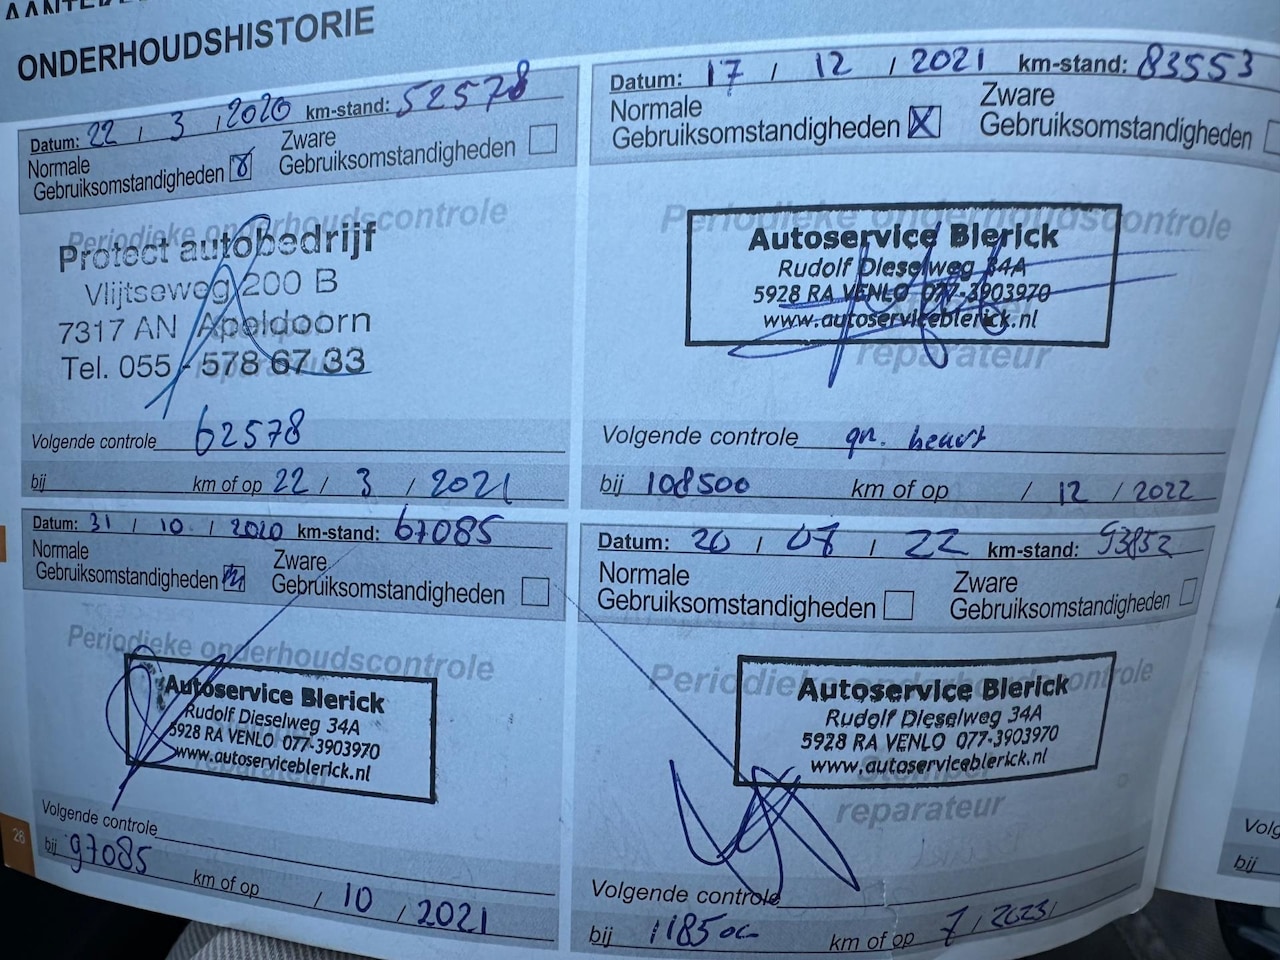 ONDERHOUDSHISTORIE
Datum: 22 / 3 / 2020 km-stand: 52578
Normale
Gebruiksomstandigheden
Zware
Gebruiksomstandigheden
Periodieke onderhoudscontrole
Protect autobedrijf
Vlijtseweg 200 B
7317 AN Apeldoorn
Tel. 055 - 578 67 33
Volgende controle 62578
bij km of op 22 / 3 / 2021
Datum: 31 / 10 / 2020 km-stand: 67085
Normale
Gebruiksomstandigheden
Zware
Gebruiksomstandigheden
Periodieke onderhoudscontrole
Autoservice Blerick
Rudolf Dieselweg 34A
5928 RA VENLO 077-3903970
www.autoserviceblerick.nl
Volgende controle
bij 97085 km of op / 10 / 2021
28
Datum: 17 / 12 / 2021 km-stand: 83553
Normale
Gebruiksomstandigheden X
Zware
Gebruiksomstandigheden
Periodieke onderhoudscontrole
Autoservice Blerick
Rudolf Dieselweg 34A
5928 RA VENLO 077-3903970
www.autoserviceblerick.nl
reparateur
Volgende controle gr. beurt
bij 108500 km of op / 12 / 2022
Datum: 20 / 07 / 22 km-stand: 93852
Normale
Gebruiksomstandigheden
Zware
Gebruiksomstandigheden
Periodieke onderhoudscontrole
Autoservice Blerick
Rudolf Dieselweg 34A
5928 RA VENLO 077-3903970
www.autoserviceblerick.nl
Stempel
reparateur
Volgende controle
bij 118500 km of op 7 / 2023
Volg
bij